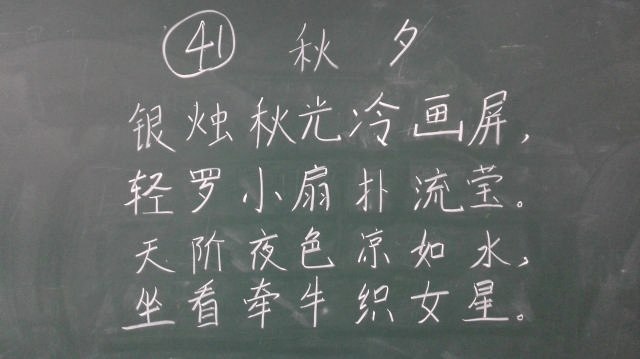 41 秋夕
银烛秋光冷画屏,
轻罗小扇扑流莹。
天阶夜色凉如水,
坐看牵牛织女星。